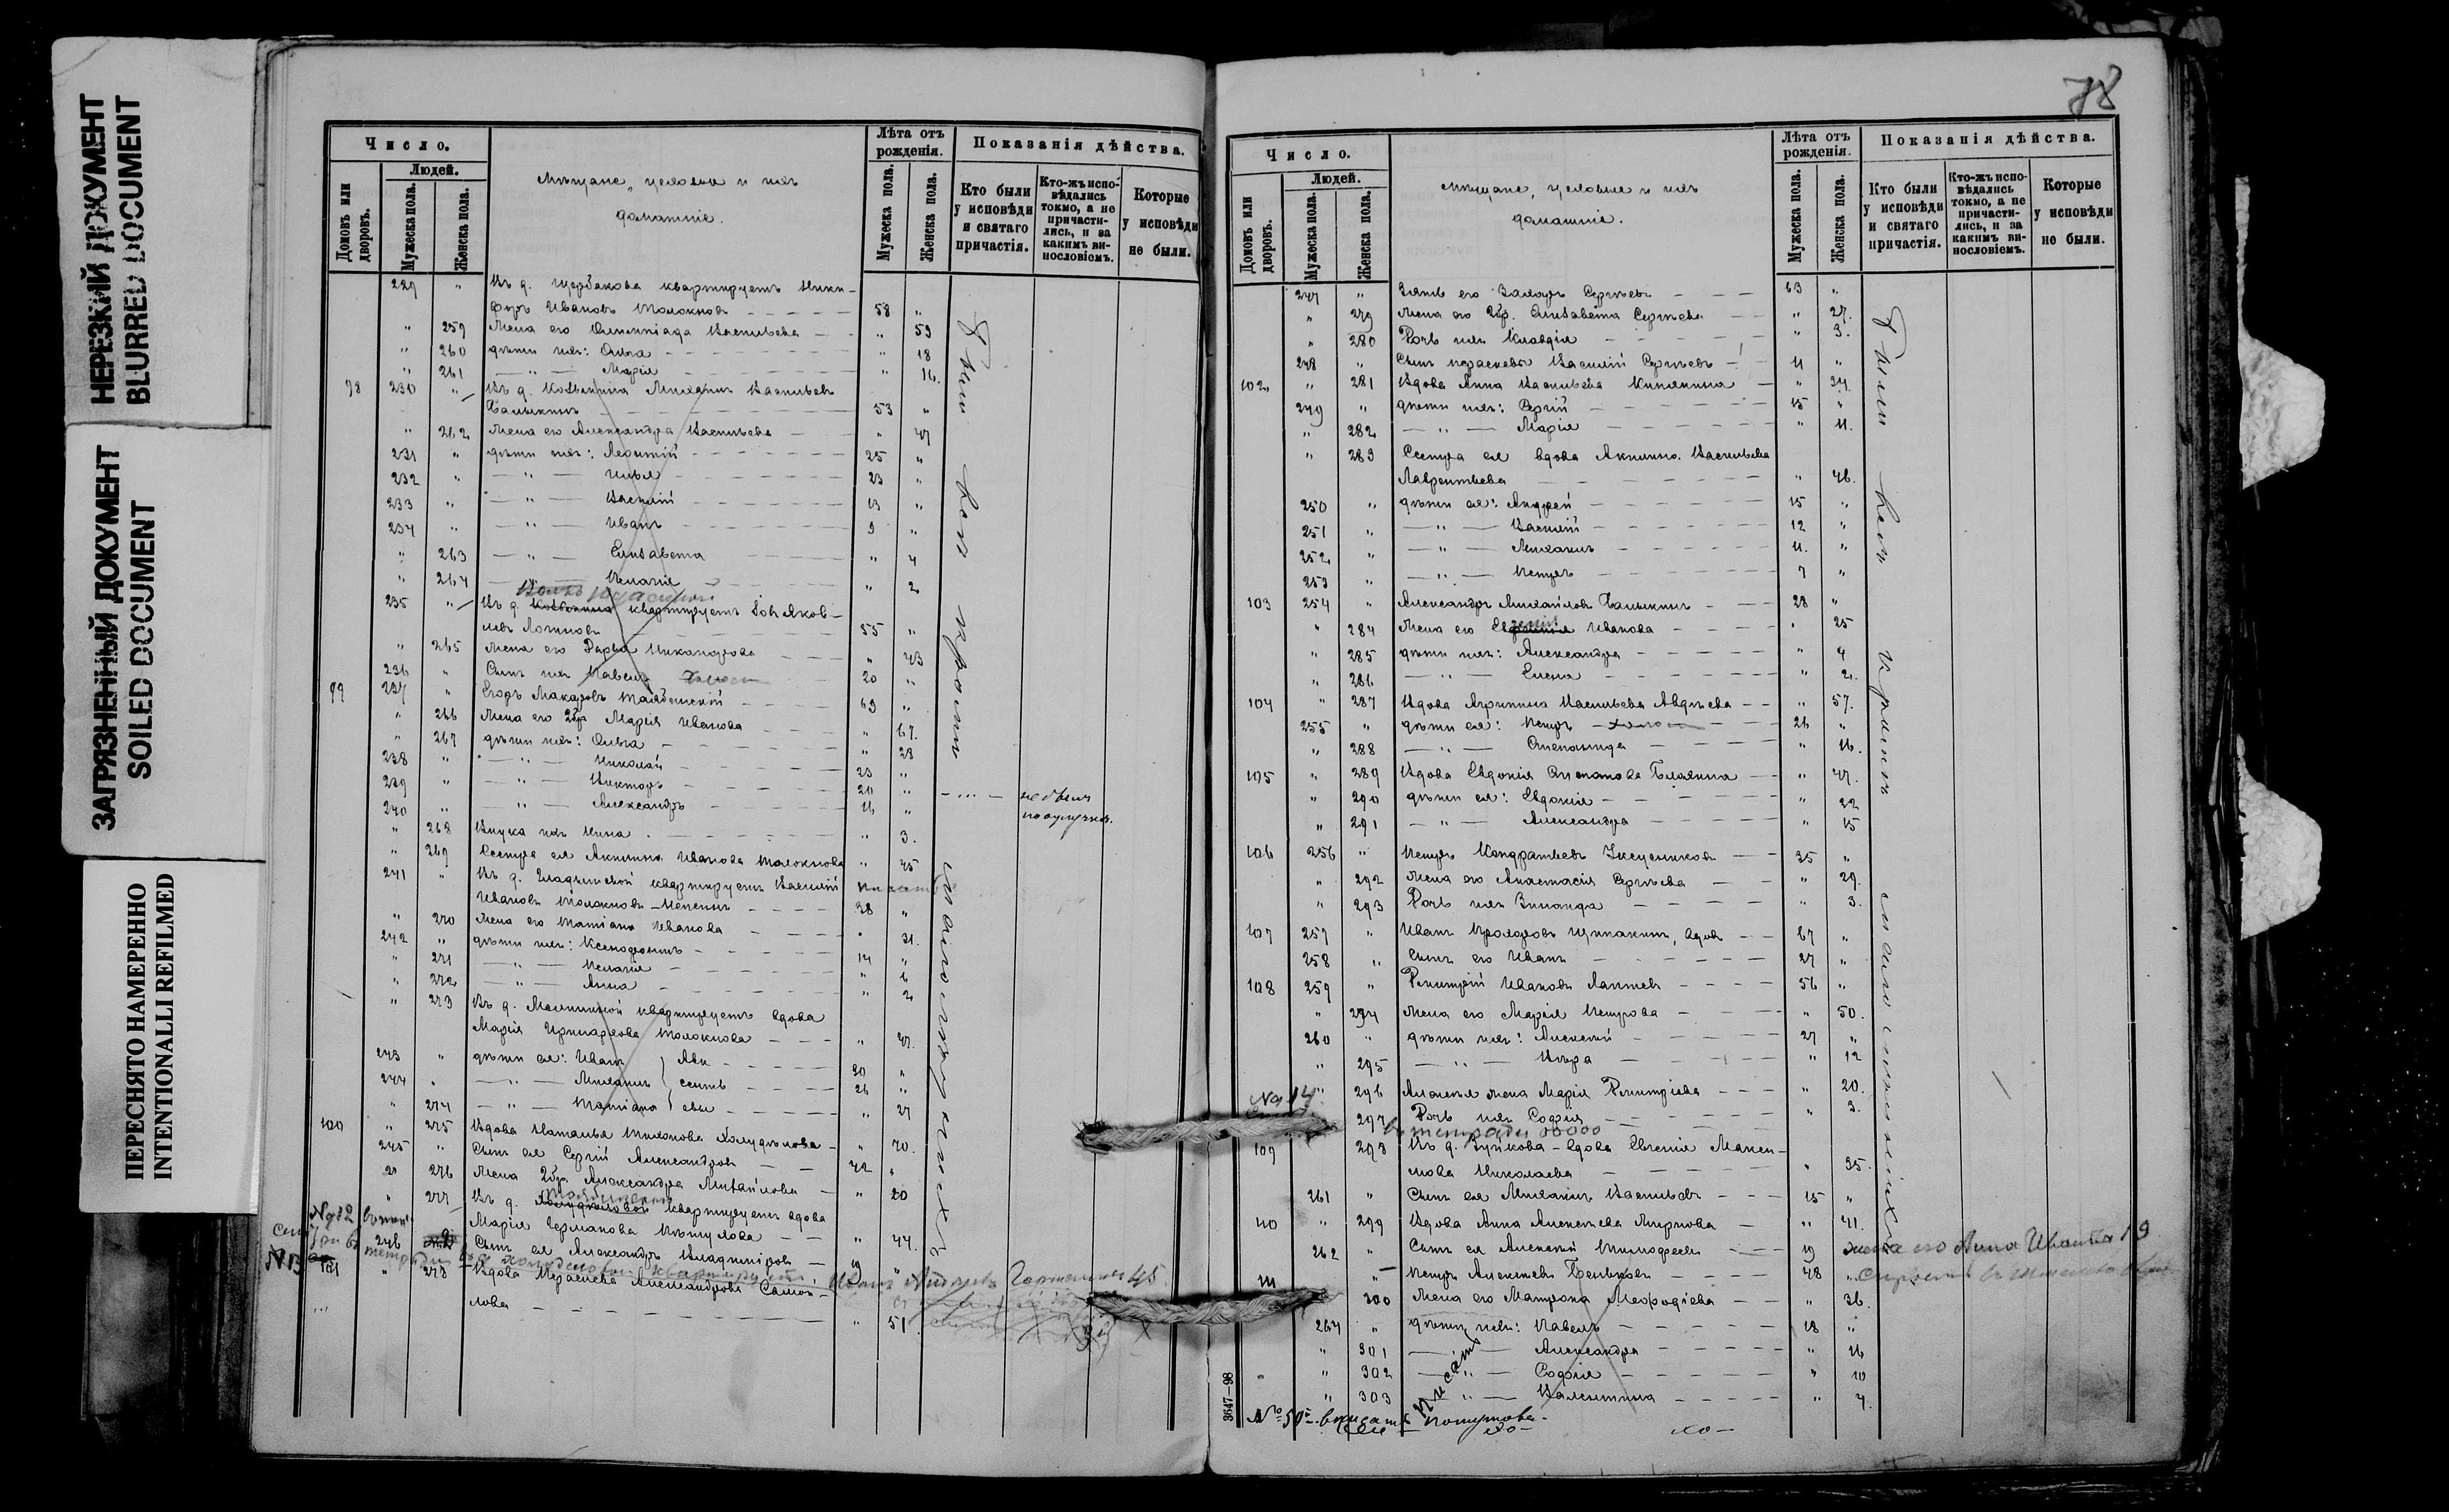 НЕРЕЗКИЙ ДОКУМЕНТ
BLURRED DOCUMENT
ЗАГРЯЗНЕННЫЙ ДОКУМЕНТ
SOILED DOCUMENT
ПЕРЕСНЯТО НАМЕРЕННО
INTENTIONALLI REFILMED
Число.
Людей.
Домовъ или дворовъ.
Мужеска пола.
Женска пола.
Мѣщане, цеховые и ихъ
домашніе.
Лѣта отъ рожденія.
Мужеска пола.
Женска пола.
Показанія дѣйства.
Кто были у исповѣди и святаго причастія.
Кто-жъ исповѣдались токмо, а не причастились, и за какимъ винословіемъ.
Которые у исповѣди не были.
229 " Въ д. Щербакова квартируетъ Ники-
форъ Ивановъ Толокновъ 58 "
" 259 Жена его Олимпіада Васильева " 59
" 260 дѣти ихъ: Ольга " 18
" 261 — " — Марія " 16.
98 230 " Въ д. Михаилъ Васильевъ
53 "
" 262 Жена его Александра Васильева " 47
231 " дѣти ихъ: Леонтій 25 "
232 " — " — Илья 23 "
233 " — " — Василій 13 "
234 " — " — Иванъ 9 "
" 263 — " — Елизавета " 4
" 264 — " — Пелагія " 2
235 " Въ д. квартируетъ Іон Яков-
левъ Логиновъ 55 "
" 265 Жена его Дарья Никанорова " 43
236 " Сынъ ихъ Павелъ 20 "
99 237 " Егоръ Макаровъ 69 "
" 266 Жена его 2бр. Марія Иванова " 67.
" 267 дѣти ихъ: Ольга " 28
238 " — " — Николай 23 "
239 " — " — Викторъ 20 "
240 " — " — Александръ 16 "
не былъ
" 268 Внука ихъ Нина " 3.
" 269 Сестра ея Акилина Иванова Толокнова " 45
241 " Въ д. квартируетъ Василій
Ивановъ Толокновъ 38 "
" 270 Жена его Татіана Иванова " 31.
242 " дѣти ихъ: Ксенофонтъ 14 "
" 271 — " — Пелагія " 6
" 272 — " — Анна " 2
" 273 Въ д. квартируетъ вдова
Марія Толокнова " 47.
243 " дѣти ея: Иванъ 30 "
244 " — " — Михаилъ 26 "
" 274 — " — Татіана " 27
100 " 275 Вдова Наталья Тихонова Холуднова " 70.
245 " Сынъ ея Сергій Александровъ 42 "
" 276 Жена 2бр. Александра Михайлова " 20
" 277 Въ д. квартируетъ вдова
Марія Германова " 44.
246 " Сынъ ея Александръ Владиміровъ 19 "
101 " 278 Вдова Параскева Александрова Самой-
лова " 51
Были вси кромѣ малолѣтнихъ
78
Число.
Людей.
Домовъ или дворовъ.
Мужеска пола.
Женска пола.
Мѣщане, цеховые и ихъ
домашніе.
Лѣта отъ рожденія.
Мужеска пола.
Женска пола.
Показанія дѣйства.
Кто были у исповѣди и святаго причастія.
Кто-жъ исповѣдались токмо, а не причастились, и за какимъ винословіемъ.
Которые у исповѣди не были.
247 " Зять его Захаръ Сергѣевъ 63 "
" 279 Жена его 2бр. Елизавета Сергѣева " 27.
" 280 Дочь ихъ Клавдія " 3.
248 " Сынъ Василій Сергѣевъ 11 "
102 " 281 Вдова Анна Васильева " 34.
249 " дѣти ихъ: Сергій 15 "
" 282 — " — Марія " 11.
" 283 Сестра ея вдова Акилина Васильева
Лаврентьева " 46.
250 " дѣти ея: Андрей 15 "
251 " — " — Василій 12 "
252 " — " — Михаилъ 11. "
253 " — " — Петръ 7 "
103 254 " Александръ Михайловъ 28 "
" 284 Жена его Иванова " 25
" 285 дѣти ихъ: Александра " 4
" 286 — " — Елена " 2.
104 " 287 Вдова Агрипина Васильева Авдѣева " 57.
255 " дѣти ея: Петръ 26 "
" 288 — " — Степанида " 16.
105 " 289 Вдова Евдокія Степанова " 47.
" 290 дѣти ея: Евдокія " 22
" 291 — " — Александра " 15
106 256 " Петръ Кондратьевъ 35 "
" 292 Жена его Анастасія Сергѣева " 29.
" 293 Дочь ихъ Зинаида " 3.
107 257 " Иванъ вдовъ 67 "
258 " Сынъ его Иванъ 27 "
108 259 " Димитрій Ивановъ Лаптевъ 56 "
" 294 Жена его Марія Петрова " 50.
260 " дѣти ихъ: Алексѣй 27 "
" 295 — " — Вѣра " 12
" 296 Алексѣя жена Марія Димитріева " 20.
" 297 Дочь ихъ Софія " 3.
въ тетради
109 298 Въ д. Зуйкова - вдова Евгенія Макси-
мова Николаева " 35.
261 " Сынъ ея Михаилъ Васильевъ 15 "
110 " 299 Вдова Анна Алексѣева Миронова " 41.
262 " Сынъ ея Алексѣй Тимофеевъ 19 жена его Анна Иванова 19
111 " Петръ Алексѣевъ Бѣльковъ 48 "
300 Жена его Матрона Меѳодіева " 36.
264 " дѣти ихъ: Павелъ 18 "
" 301 — " — Александра " 16
" 302 — " — Софія " 10
" 303 — " — Валентина " 4.
Были вси кромѣ малолѣтнихъ
3647—98